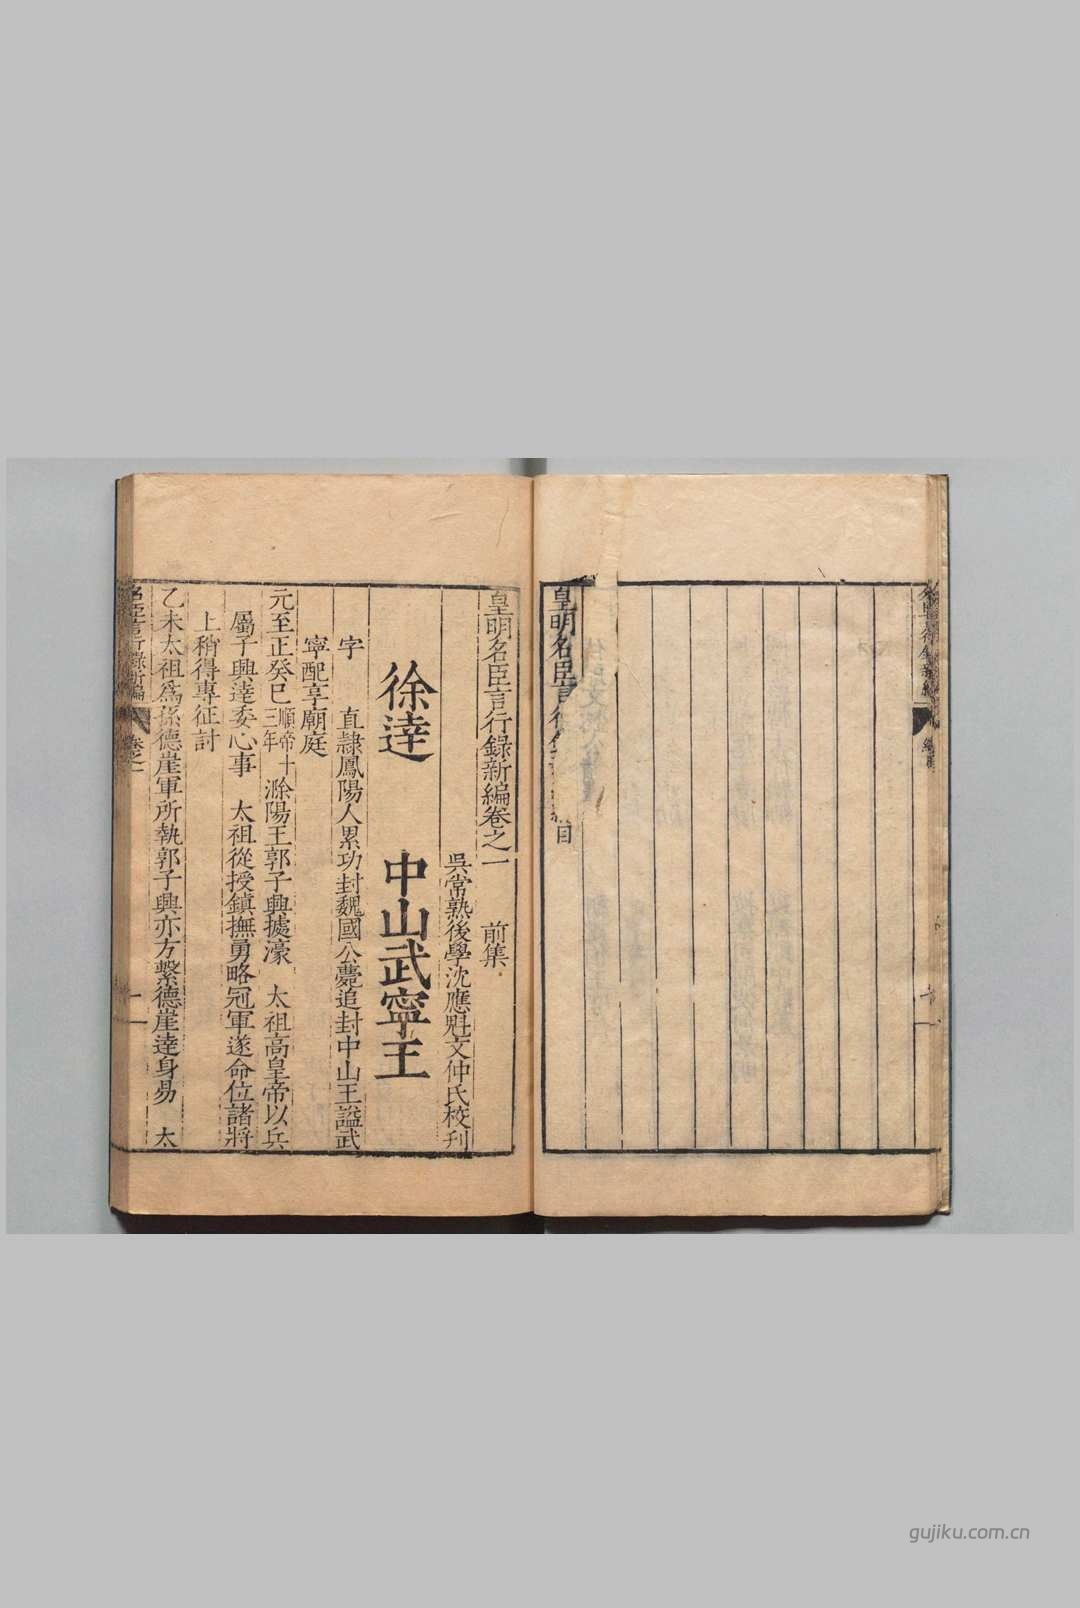 皇明名臣言行
目
皇明名臣言行錄新編卷之一 前集
吳常熟後學沈應魁文仲氏校刊
徐逹 中山武寧王
字 直隸鳳陽人累功封魏國公薨追封中山王謚武
寧配享廟庭
元至正癸巳順帝十三年滁陽王郭子興據濠 太祖高皇帝以兵
屬子興逹委心事 太祖從授鎮撫勇略冠軍遂命位諸將
上稍得專征討
乙未太祖爲孫德崖軍所執郭子興亦方繫德崖逹身易 太
名臣言行錄新編 卷之一 一
gujiku.com.cn